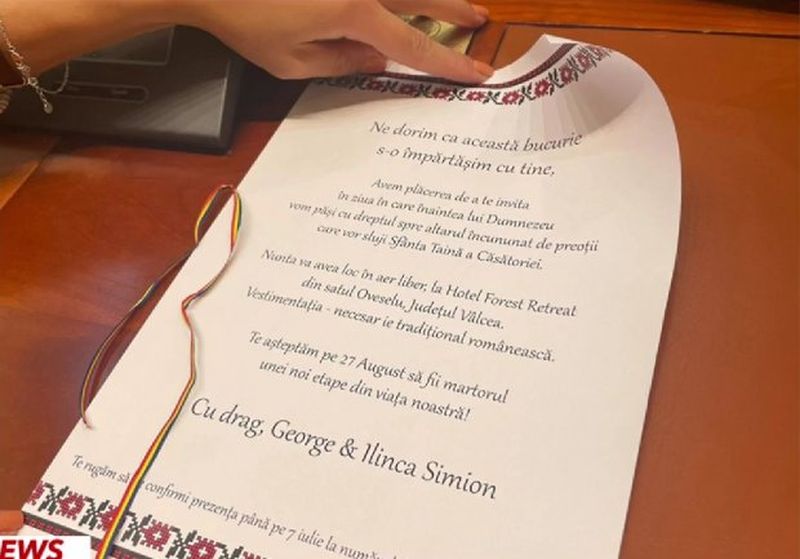 Ne dorim ca această bucurie
s-o împărtășim cu tine,
Avem plăcerea de a te invita
în ziua în care înaintea lui Dumnezeu
vom păși cu dreptul spre altarul încununat de preoții
care vor sluji Sfânta Taină a Căsătoriei.
Nunta va avea loc în aer liber, la Hotel Forest Retreat
din satul Oveselu, Județul Vâlcea.
Vestimentația - necesar ie tradițional românească.
Te așteptăm pe 27 August să fii martorul
unei noi etape din viața noastră!
Cu drag, George & Ilinca Simion
Te rugăm să confirmi prezența până pe 7 iulie la
EWS